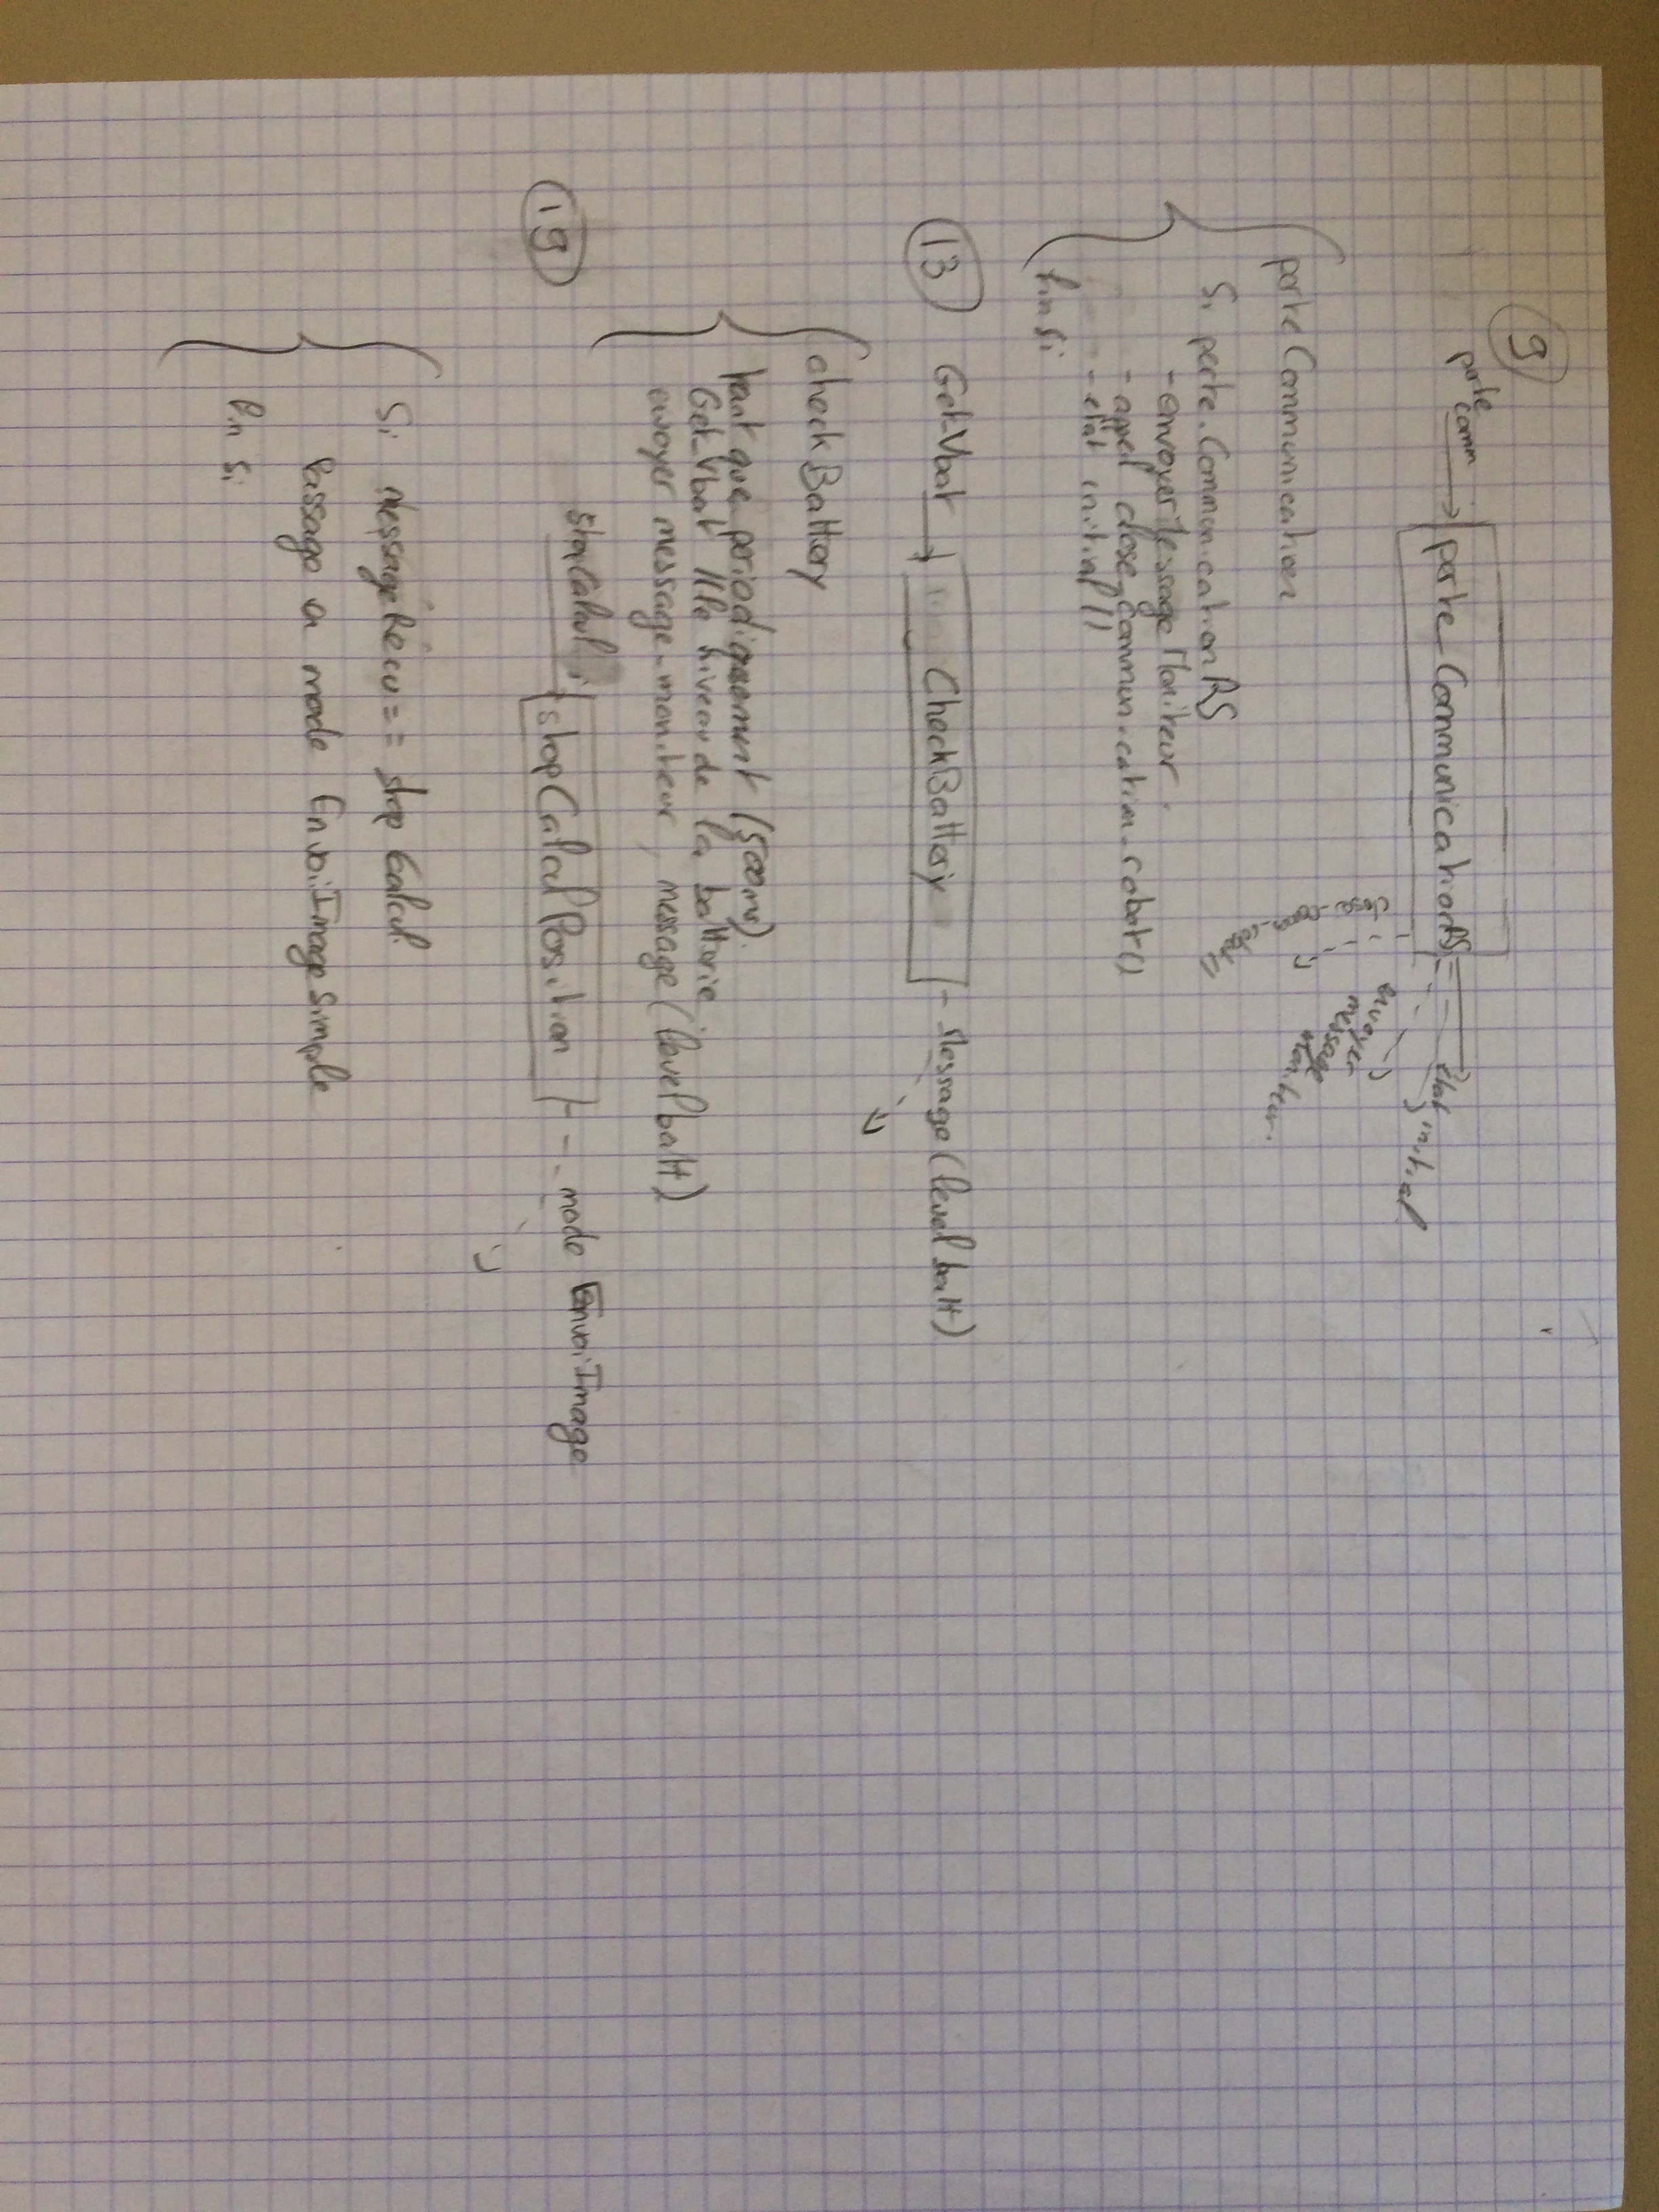 9
perte
comm
perte_CommunicationRS
état initial
envoyer
message
Moniteur.
close_com_robot()
perte Communication
Si perte.CommunicationRS
- envoyer Message Moniteur.
- appel close_communication_robot()
- état initial ()
fin si
13
Get_Vbat
CheckBattery
Message (level batt)
check Battery
tant que periodiquement (500ms).
Get_Vbat // le niveau de la batterie.
envoyer message_moniteur, message (level batt)
19
stopCalcul
stopCalculPosition
mode EnvoiImage
Si MessageRécu == stop Calcul.
Passage à mode EnvoiImage Simple
Fin Si